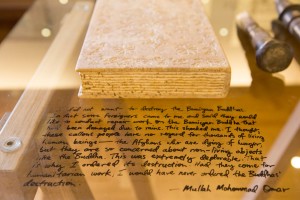 I did not want to destroy the Bamiyan Buddhas.
fact some foreigners came to me and said they would
like to conduct repair work on the Bamiyan Buddha that
had been damaged due to rains. This shocked me. I thought
these callous people have no regard for thousands of living
human beings — the Afghans who are dying of hunger,
but they are so concerned about non-living objects
like the Buddha. This was extremely deplorable. That
is why I ordered its destruction. Had they come for
humanitarian work, I would have never ordered the Buddhas'
destruction.
— Mullah Mohammad Omar